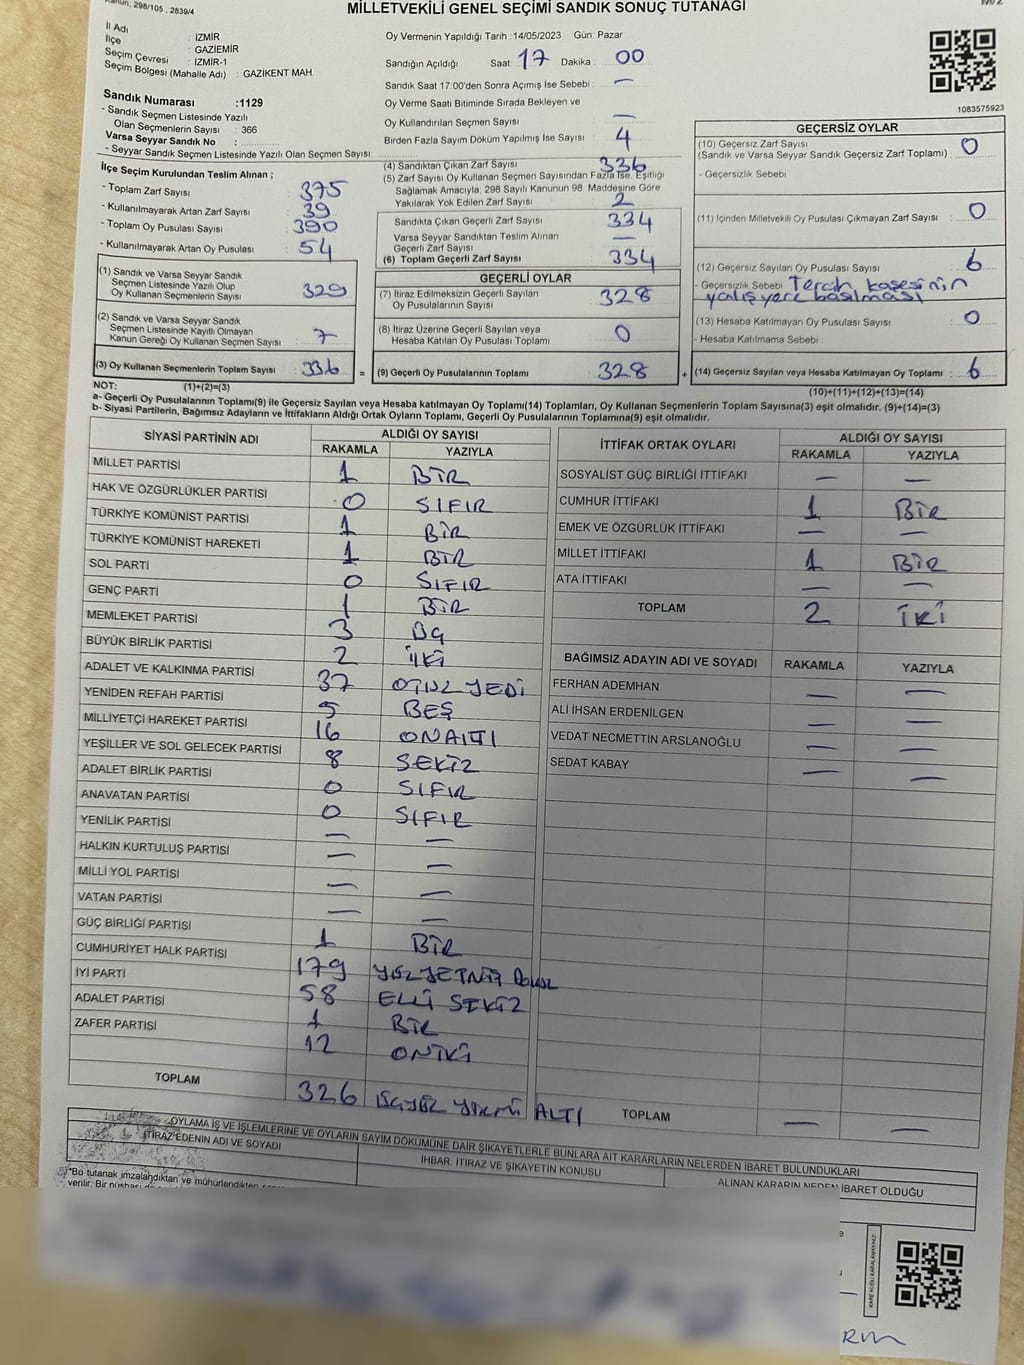 Kanun; 298/105 , 2839/4
MİLLETVEKİLİ GENEL SEÇİMİ SANDIK SONUÇ TUTANAĞI
İl Adı : İZMİR
İlçe : GAZİEMİR
Seçim Çevresi : İZMİR-1
Seçim Bölgesi (Mahalle Adı) : GAZİKENT MAH.
Sandık Numarası :1129
- Sandık Seçmen Listesinde Yazılı
Olan Seçmenlerin Sayısı : 366
Varsa Seyyar Sandık No :
- Seyyar Sandık Seçmen Listesinde Yazılı Olan Seçmen Sayısı:
Oy Vermenin Yapıldığı Tarih :14/05/2023 Gün: Pazar
Sandığın Açıldığı Saat: 17 Dakika: 00
Sandık Saat 17:00'den Sonra Açılmış İse Sebebi : —
Oy Verme Saati Bitiminde Sırada Bekleyen ve
Oy Kullandırılan Seçmen Sayısı —
Birden Fazla Sayım Döküm Yapılmış İse Sayısı : 4
1083575923
İlçe Seçim Kurulundan Teslim Alınan ;
- Toplam Zarf Sayısı : 375
- Kullanılmayarak Artan Zarf Sayısı : 39
- Toplam Oy Pusulası Sayısı : 390
- Kullanılmayarak Artan Oy Pusulası : 54
(1) Sandık ve Varsa Seyyar Sandık
Seçmen Listesinde Yazılı Olup
Oy Kullanan Seçmenlerin Sayısı : 329
(2) Sandık ve Varsa Seyyar Sandık
Seçmen Listesinde Kayıtlı Olmayan
Kanun Gereği Oy Kullanan Seçmen Sayısı : 7
(3) Oy Kullanan Seçmenlerin Toplam Sayısı : 336 =
(4) Sandıktan Çıkan Zarf Sayısı : 336
(5) Zarf Sayısı Oy Kullanan Seçmen Sayısından Fazla İse, Eşitliği
Sağlamak Amacıyla, 298 Sayılı Kanunun 98. Maddesine Göre
Yakılarak Yok Edilen Zarf Sayısı : 2
Sandıkta Çıkan Geçerli Zarf Sayısı : 334
Varsa Seyyar Sandıktan Teslim Alınan
Geçerli Zarf Sayısı : —
(6) Toplam Geçerli Zarf Sayısı : 334
GEÇERLİ OYLAR
(7) İtiraz Edilmeksizin Geçerli Sayılan
Oy Pusulalarının Sayısı : 328
(8) İtiraz Üzerine Geçerli Sayılan veya
Hesaba Katılan Oy Pusulası Toplamı : 0
(9) Geçerli Oy Pusulalarının Toplamı : 328 +
GEÇERSİZ OYLAR
(10) Geçersiz Zarf Sayısı
(Sandık ve Varsa Seyyar Sandık Geçersiz Zarf Toplamı) : 0
- Geçersizlik Sebebi
(11) İçinden Milletvekili Oy Pusulası Çıkmayan Zarf Sayısı : 0
(12) Geçersiz Sayılan Oy Pusulası Sayısı : 6
- Geçersizlik Sebebi Tercih kaşesinin
yalış yere basılması
(13) Hesaba Katılmayan Oy Pusulası Sayısı : 0
- Hesaba Katılmama Sebebi :
(14) Geçersiz Sayılan veya Hesaba Katılmayan Oy Toplamı : 6
NOT: (1)+(2)=(3) (10)+(11)+(12)+(13)=(14)
a- Geçerli Oy Pusulalarının Toplamı(9) ile Geçersiz Sayılan veya Hesaba katılmayan Oy Toplamı(14) Toplamları, Oy Kullanan Seçmenlerin Toplam Sayısına(3) eşit olmalıdır. (9)+(14)=(3)
b- Siyasi Partilerin, Bağımsız Adayların ve İttifakların Aldığı Ortak Oyların Toplamı, Geçerli Oy Pusulalarının Toplamına(9) eşit olmalıdır.
SİYASİ PARTİNİN ADI ALDIĞI OY SAYISI
RAKAMLA YAZIYLA
MİLLET PARTİSİ 1 BİR
HAK VE ÖZGÜRLÜKLER PARTİSİ 0 SIFIR
TÜRKİYE KOMÜNİST PARTİSİ 1 BİR
TÜRKİYE KOMÜNİST HAREKETİ 1 BİR
SOL PARTİ 0 SIFIR
GENÇ PARTİ 1 BİR
MEMLEKET PARTİSİ 3 ÜÇ
BÜYÜK BİRLİK PARTİSİ 2 İKİ
ADALET VE KALKINMA PARTİSİ 37 OTUZ YEDİ
YENİDEN REFAH PARTİSİ 5 BEŞ
MİLLİYETÇİ HAREKET PARTİSİ 16 ONALTI
YEŞİLLER VE SOL GELECEK PARTİSİ 8 SEKİZ
ADALET BİRLİK PARTİSİ 0 SIFIR
ANAVATAN PARTİSİ 0 SIFIR
YENİLİK PARTİSİ — —
HALKIN KURTULUŞ PARTİSİ — —
MİLLİ YOL PARTİSİ — —
VATAN PARTİSİ — —
GÜÇ BİRLİĞİ PARTİSİ 1 BİR
CUMHURİYET HALK PARTİSİ 179 YÜZ YETMİŞ DOKUZ
İYİ PARTİ 58 ELLİ SEKİZ
ADALET PARTİSİ 1 BİR
ZAFER PARTİSİ 12 ONİKİ
TOPLAM 326 ÜÇYÜZ YİRMİ ALTI
İTTİFAK ORTAK OYLARI ALDIĞI OY SAYISI
RAKAMLA YAZIYLA
SOSYALİST GÜÇ BİRLİĞİ İTTİFAKI — —
CUMHUR İTTİFAKI 1 BİR
EMEK VE ÖZGÜRLÜK İTTİFAKI — —
MİLLET İTTİFAKI 1 BİR
ATA İTTİFAKI — —
TOPLAM 2 İKİ
BAĞIMSIZ ADAYIN ADI VE SOYADI RAKAMLA YAZIYLA
FERHAN ADEMHAN — —
ALİ İHSAN ERDENİLGEN — —
VEDAT NECMETTİN ARSLANOĞLU — —
SEDAT KABAY — —
TOPLAM — —
OYLAMA İŞ VE İŞLEMLERİNE VE OYLARIN SAYIM DÖKÜMÜNE DAİR ŞİKAYETLERLE BUNLARA AİT KARARLARIN NELERDEN İBARET BULUNDUKLARI
İTİRAZ EDENİN ADI VE SOYADI İHBAR, İTİRAZ VE ŞİKAYETİN KONUSU ALINAN KARARIN NEDEN İBARET OLDUĞU
*Bu tutanak imzalandıktan ve mühürlendikten
verilir. Bir nüshası
KARE KODU KARALAMAYINIZ!